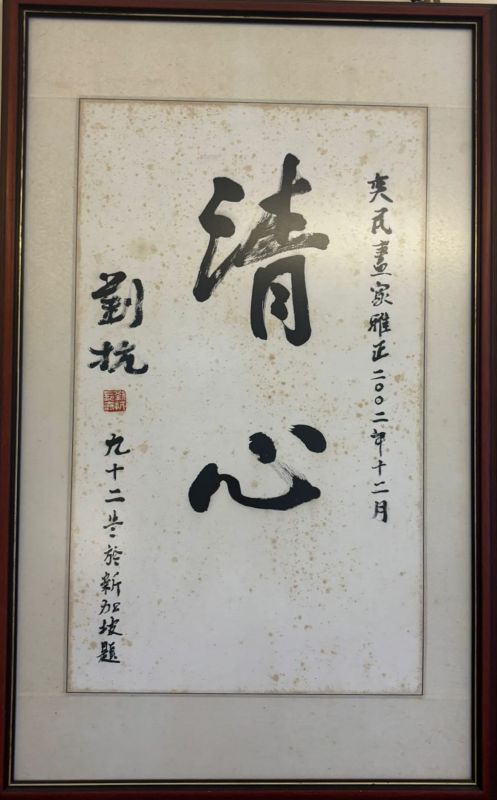 奕民畫家雅正二〇〇二年十二月
清心
劉抗
九十二岁於新加坡題